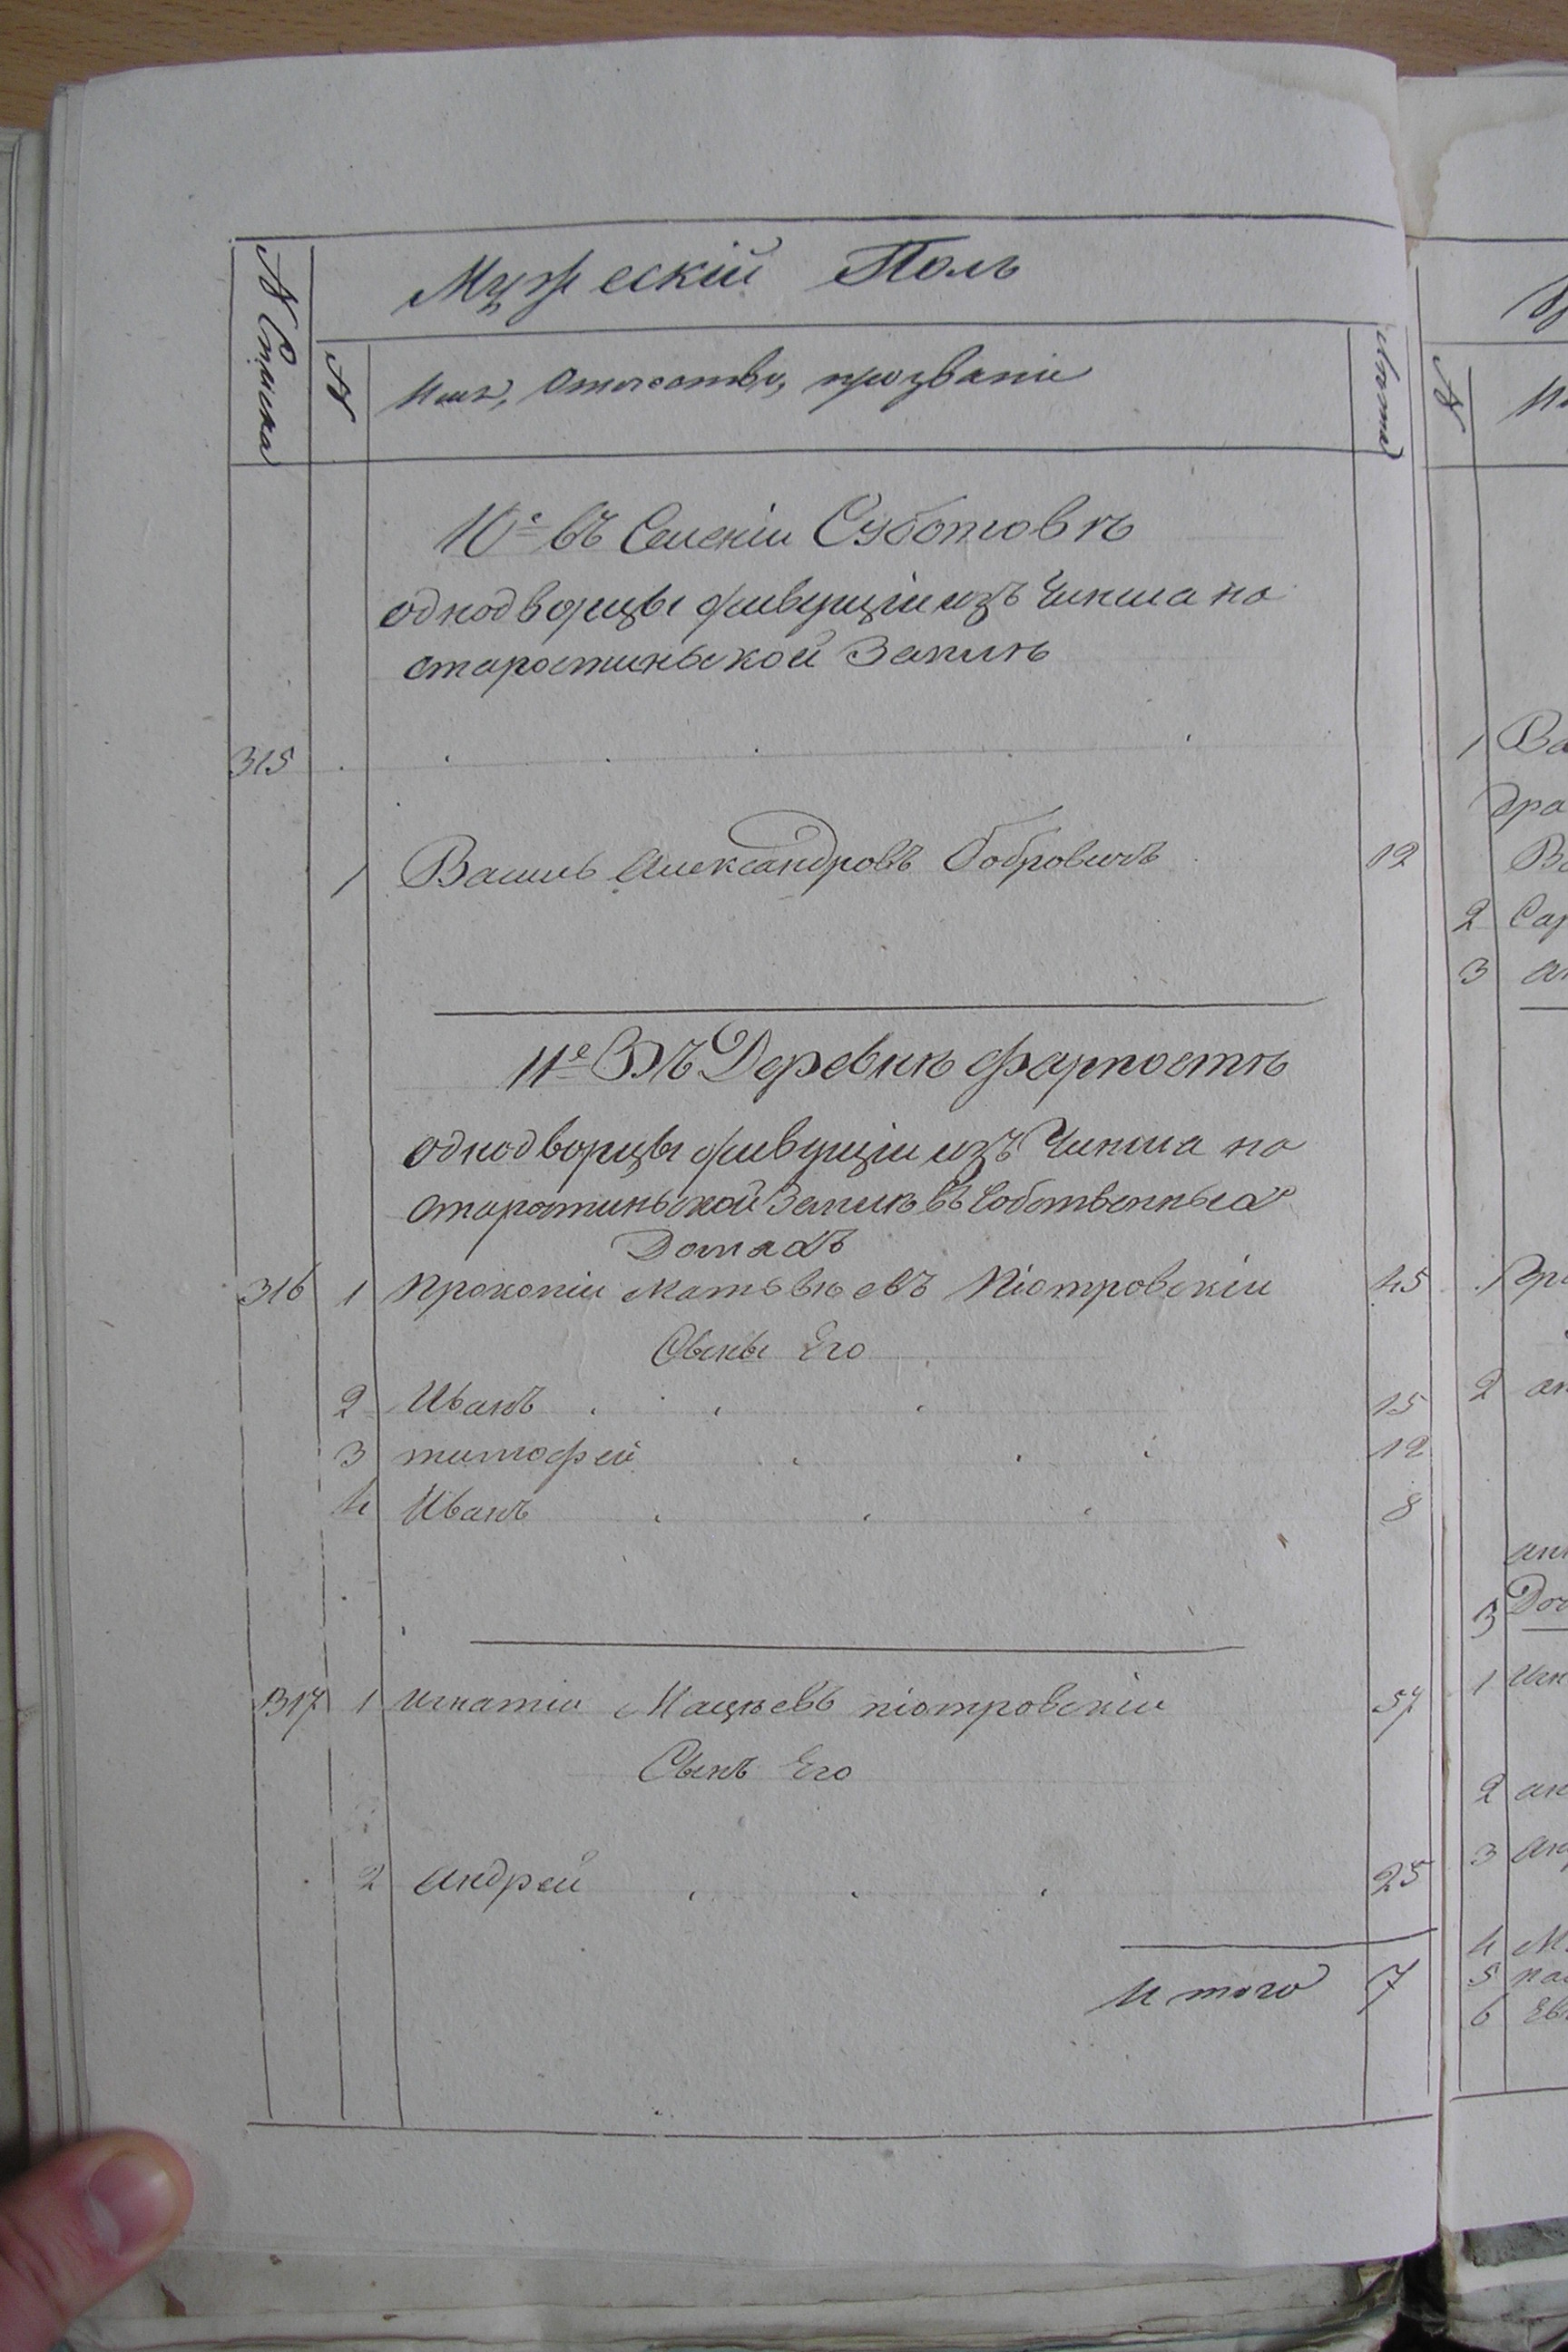 Мужескій Полъ
№ Списка
№
Имя, Отчество, прозваніе
Лѣта
10е въ Селеніи Суботовѣ
однодворцы живущіе изъ Чинша на
старостинской Землѣ
315
1 Василь Александровъ Бобровичъ 12
11е Въ Деревнѣ Фарпостѣ
однодворцы живущіе изъ Чинша на
старостинской Землѣ въ Собственныхъ
Домахъ
316 1 Прокопій Матвѣевъ Піотровскій 45
Сыны Его
2 Иванъ 15
3 тимофей 12
4 Иванъ 8
317 1 Игнатій Мацѣевъ піотровскій 57
Сынъ Его
2 Андрей 25
Итого 7
№
1 Ва
2 Сар
3
1
2
3 Доч
1 Игн
2
3
4
5
6